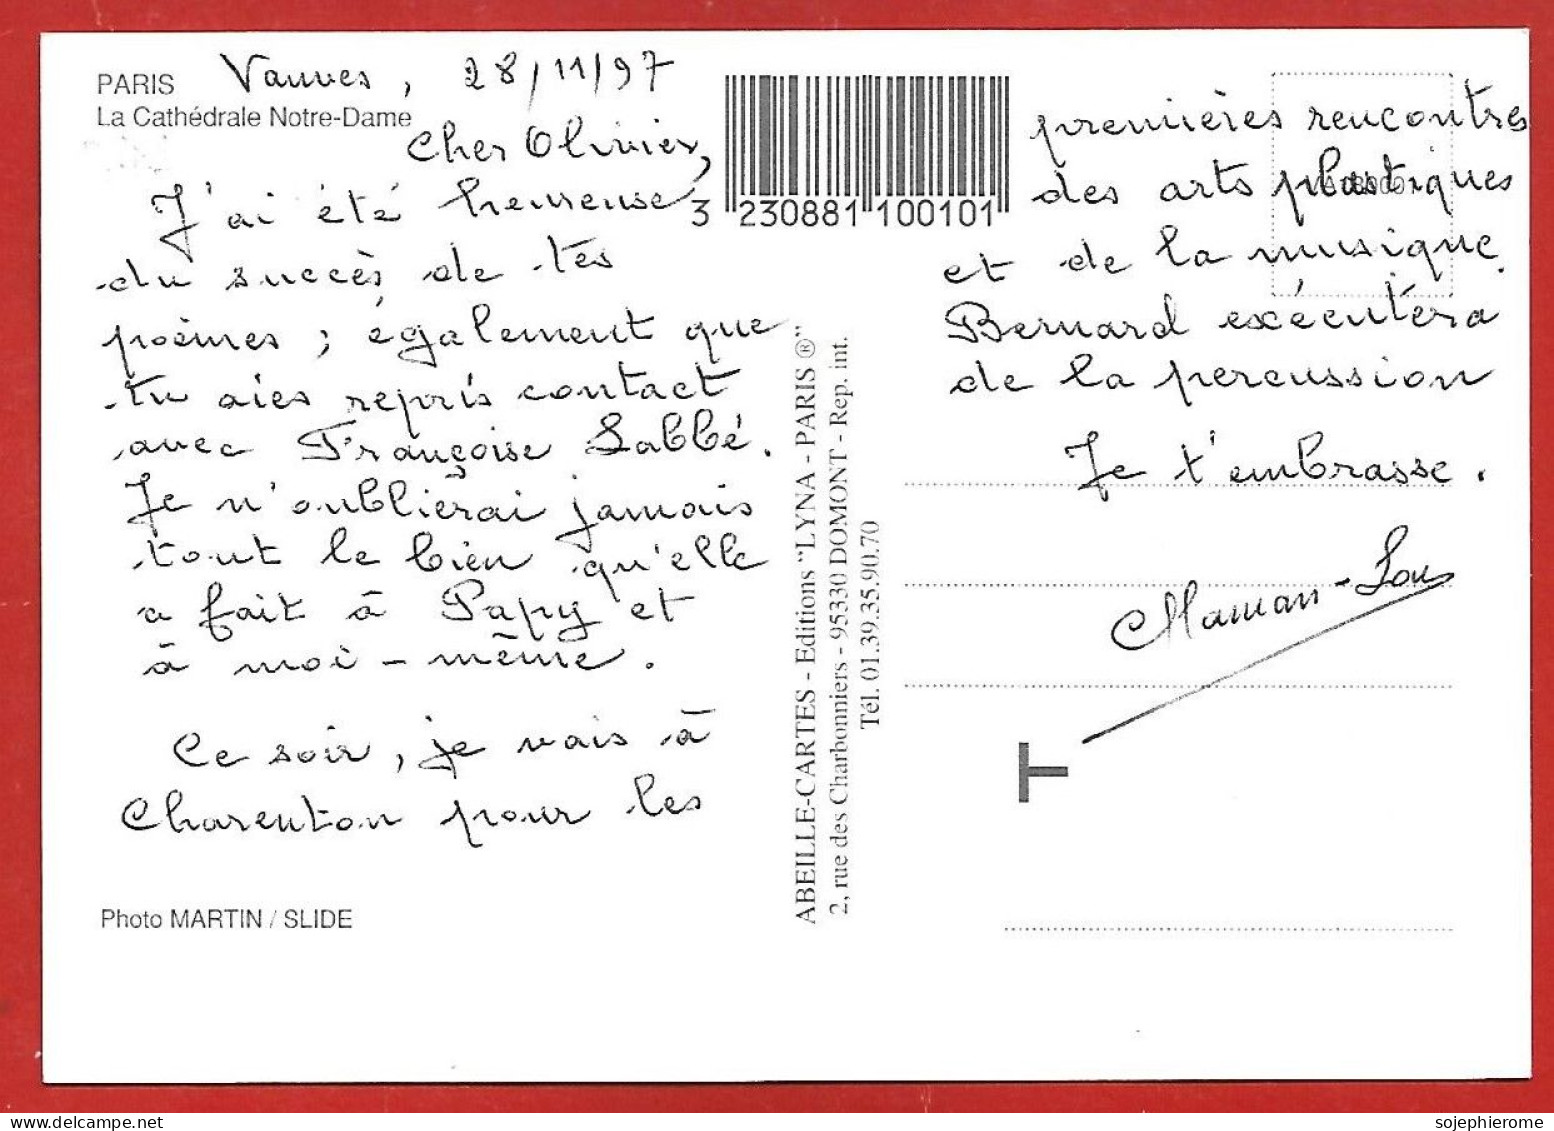 PARIS
La Cathédrale Notre-Dame
Vanves, 28/11/97
Cher Olivier,
J'ai été heureuse
du succès de tes
poèmes ; également que
tu aies repris contact
avec Françoise Labbé.
Je n'oublierai jamais
tout le bien qu'elle
a fait à Papy et
à moi-même.
Ce soir, je vais à
Charenton pour les
Photo MARTIN / SLIDE
3 230881 100101
ABEILLE-CARTES - Editions "LYNA - PARIS ®"
2, rue des Charbonniers - 95330 DOMONT - Rep. int.
Tél. 01.39.35.90.70
premières rencontres
des arts plastiques
et de la musique.
Bernard exécutera
de la percussion
Je t'embrasse.
Maman-Lou
sojephierome